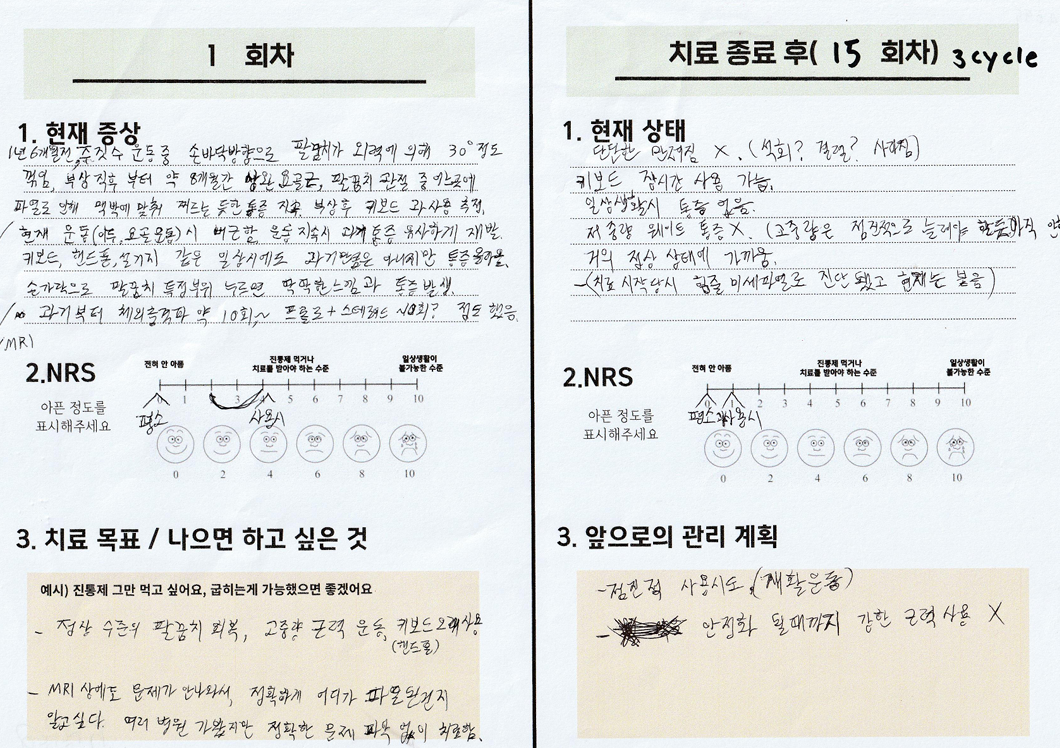 1 회차
1. 현재 증상
1년 6개월전, 주짓수 운동중 손바닥방향으로 팔꿈치가 외력에 의해 30°정도
꺾임, 부상직후 부터 약 8개월간 상완요골근, 팔꿈치 관절 중
파열로 인해 맥박에 맞춰 찌르는 듯한 통증 지속. 부상후 키보드 과사용
현재 운동(이두, 요골운동)시 뻐근함, 운동지속시 과거통증 유사하게 재발.
키보드, 핸드폰, 설거지 같은 일상시에도 과거만큼은 아니지만 통증
손가락으로 팔꿈치 특정부위 누르면 딱딱한느낌과 통증발생.
과거부터 체외충격파 약 10회, 프롤로 + 스테로이드 10회? 정도 했음.
/MRI
2.NRS
아픈 정도를
표시해주세요
전혀 안 아픔
진통제 먹거나
치료를 받아야 하는 수준
일상생활이
불가능한 수준
0 1 3 4 5 6 7 8 9 10
평소 사용시
0 2 4 6 8 10
3. 치료 목표 / 나으면 하고 싶은 것
예시) 진통제 그만 먹고 싶어요, 굽히는게 가능했으면 좋겠어요
- 정상 수준의 팔꿈치 회복, 고중량 근력 운동, 키보드오래사용
(핸드폰)
- MRI 상에도 문제가 안나와서, 정확하게 어디가 파열된건지
알고싶다. 여러 병원 가봤지만 정확한 문제 파악 없이 치료함.
치료 종료 후( 15 회차) 3cycle
1. 현재 상태
단단한 만져짐 X. (석회? 결절? 사라짐)
키보드 장시간 사용 가능.
일상생활시 통증 없음.
저중량 웨이트 통증X. (고중량은 점진적으로 늘려야 한듯
거의 정상 상태에 가까움.
-(치료 시작당시 힘줄 미세파열로 진단 됐고 현재는 붙음)
2.NRS
아픈 정도를
표시해주세요
전혀 안 아픔
진통제 먹거나
치료를 받아야 하는 수준
일상생활이
불가능한 수준
0 1 2 3 4 5 6 7 8 9 10
평소 사용시
0 2 4 6 8 10
3. 앞으로의 관리 계획
- 점진적 사용시도, (재활운동)
- 안정화 될때까지 강한 근력사용 X